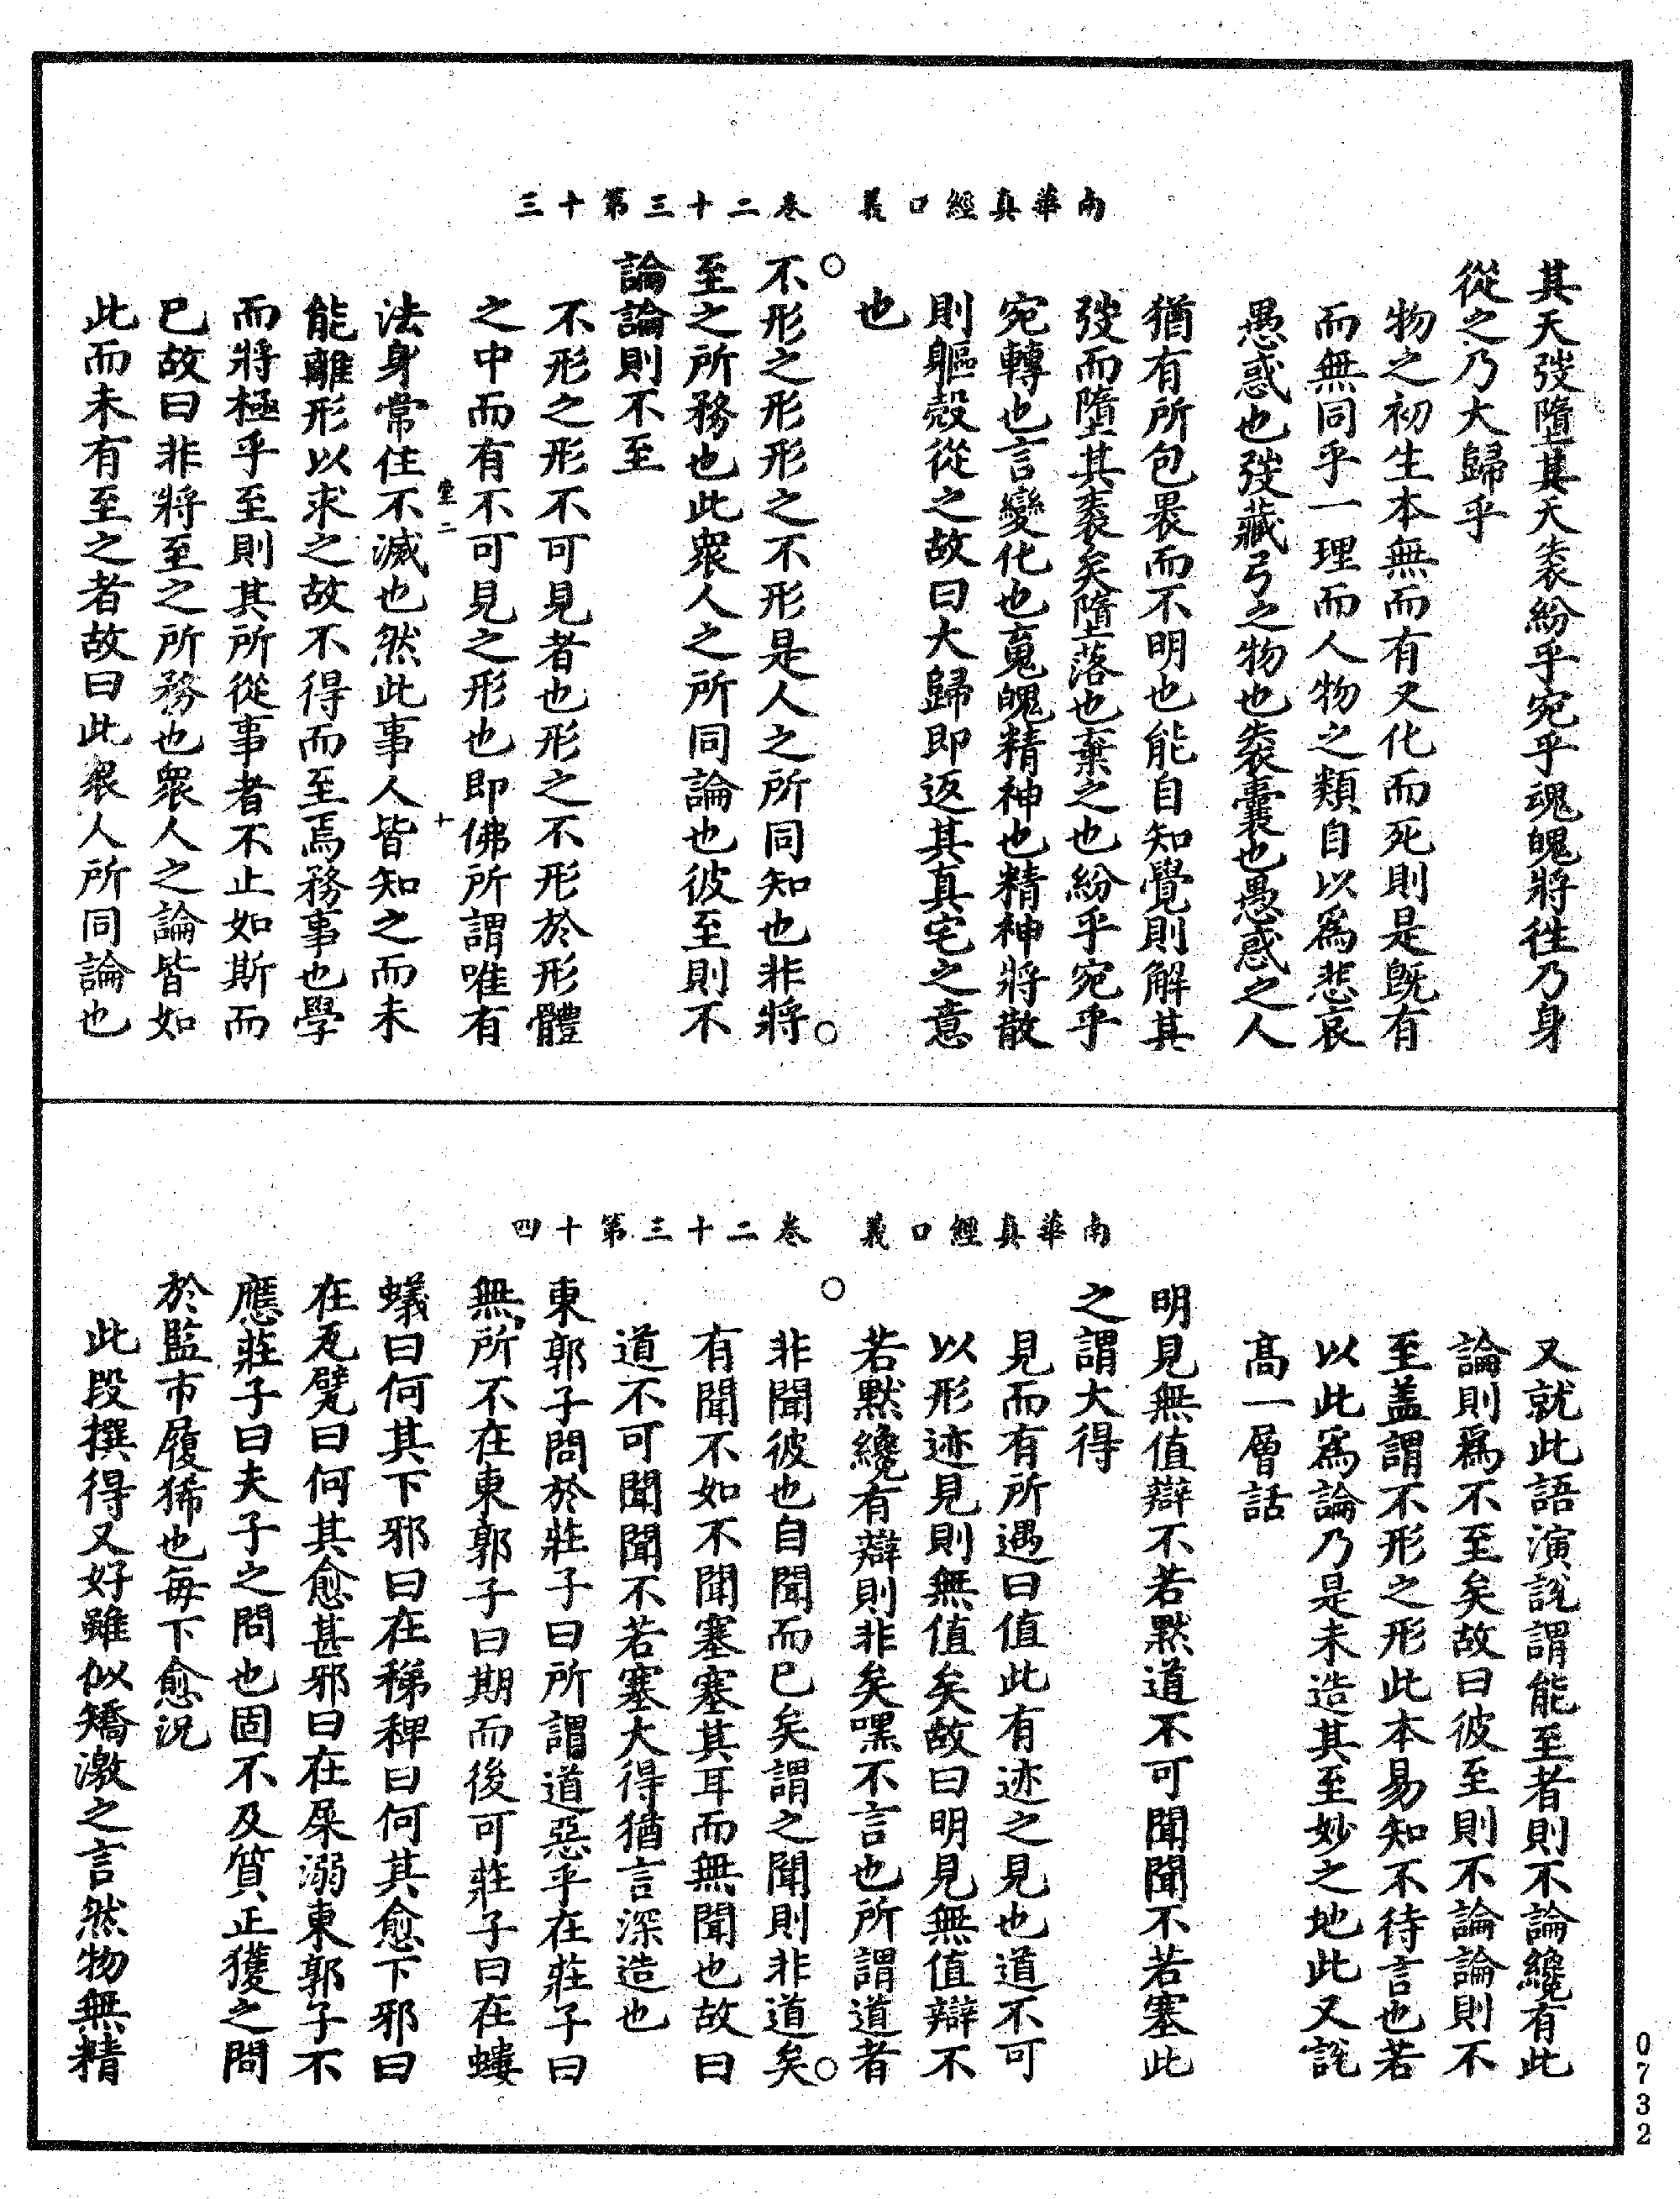 南華真經口義　卷二十三第十三
其天弢墮其天袠紛乎宛乎魂魄將徃乃身
從之乃大歸乎
物之初生本無而有又化而死則是旣有
而無同乎一理而人物之類自以爲悲哀
愚惑也弢藏弓之物也袠囊也愚惑之人
猶有所包褁而不明也能自知覺則解其
弢而墮其袠矣墮落也棄之也紛乎宛乎
宛轉也言變化也䰟魄精神也精神將散
則軀殼從之故曰大歸即返其真宅之意
也
不形之形形之不形是人之所同知也非將
至之所務也此衆人之所同論也彼至則不
論論則不至
不形之形不可見者也形之不形於形體
之中而有不可見之形也即佛所謂唯有
堂二　十
法身常住不滅也然此事人皆知之而未
能離形以求之故不得而至焉務事也學
而將極乎至則其所從事者不止如斯而
已故曰非將至之所務也衆人之論皆如
此而未有至之者故曰此衆人所同論也
南華真經口義　卷二十三第十四
又就此語演說謂能至者則不論纔有此
論則爲不至矣故曰彼至則不論論則不
至盖謂不形之形此本易知不待言也若
以此爲論乃是未造其至妙之地此又說
高一層話
明見無值辯不若默道不可聞聞不若塞此
之謂大得
見而有所遇曰值此有迹之見也道不可
以形迹見則無值矣故曰明見無值辯不
若默纔有辯則非矣嘿不言也所謂道者
非聞彼也自聞而已矣謂之聞則非道矣
有聞不如不聞塞塞其耳而無聞也故曰
道不可聞聞不若塞大得猶言深造也
東郭子問於莊子曰所謂道惡乎在莊子曰
無所不在東郭子曰期而後可莊子曰在螻
蟻曰何其下邪曰在稊稗曰何其愈下邪曰
在瓦甓曰何其愈甚邪曰在屎溺東郭子不
應莊子曰夫子之問也固不及質正獲之問
於監市履狶也每下愈況
此段撰得又好雖似矯激之言然物無精
0732